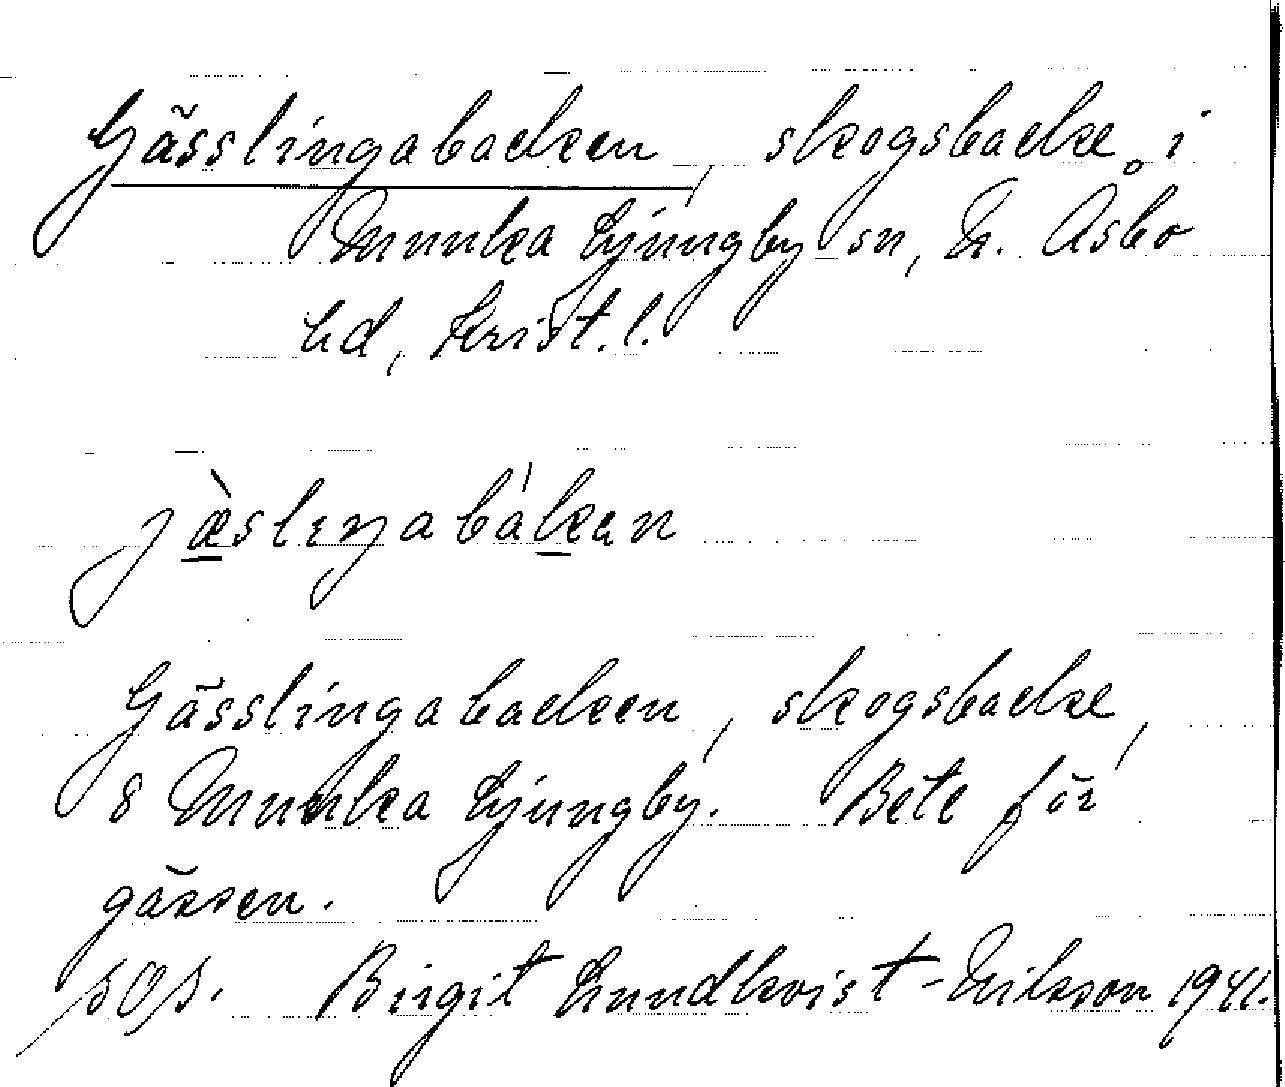 Gässlingabacken, skogsbacke i
Munka Ljungby sn, N. Åsbo
hd, Krist. l.
jæ̀slıŋabákan
Gässlingabacken, skogsbacke,
8 Munka Ljungby. Bete för
gässen.
Birgit Lundkvist-Nilsson 1941.